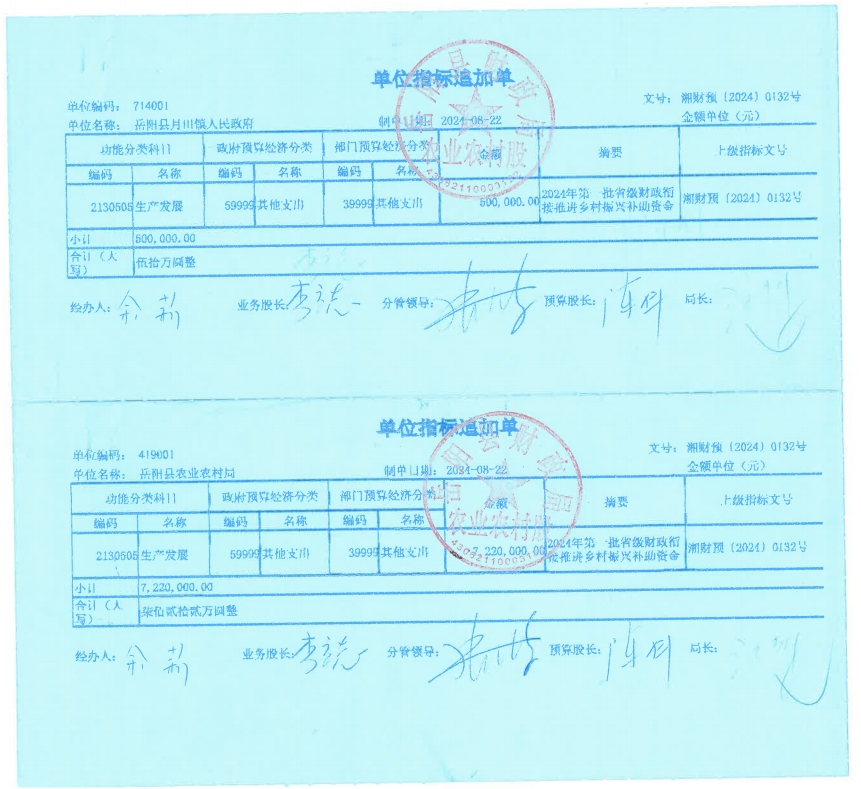 单位指标追加单
单位编码： 714001
文号： 湘财预〔2024〕0132号
单位名称： 岳阳县月田镇人民政府 制单日期： 2024-08-22 金额单位（元）
功能分类科目 政府预算经济分类 部门预算经济分类 金额 摘要 上级指标文号
编码 名称 编码 名称 编码 名称
2130505 生产发展 59999 其他支出 39999 其他支出 500,000.00 2024年第一批省级财政衔接推进乡村振兴补助资金 湘财预〔2024〕0132号
小计 500,000.00
合计（大写） 伍拾万圆整
经办人： 业务股长： 李志 分管领导： 预算股长： 局长：
岳阳县财政局
农业农村股
单位指标追加单
单位编码： 419001
文号： 湘财预〔2024〕0132号
单位名称： 岳阳县农业农村局 制单日期： 2024-08-22 金额单位（元）
功能分类科目 政府预算经济分类 部门预算经济分类 金额 摘要 上级指标文号
编码 名称 编码 名称 编码 名称
2130505 生产发展 59999 其他支出 39999 其他支出 7,220,000.00 2024年第一批省级财政衔接推进乡村振兴补助资金 湘财预〔2024〕0132号
小计 7,220,000.00
合计（大写） 柒佰贰拾贰万圆整
经办人： 业务股长： 李志 分管领导： 预算股长： 局长：
岳阳县财政局
农业农村股